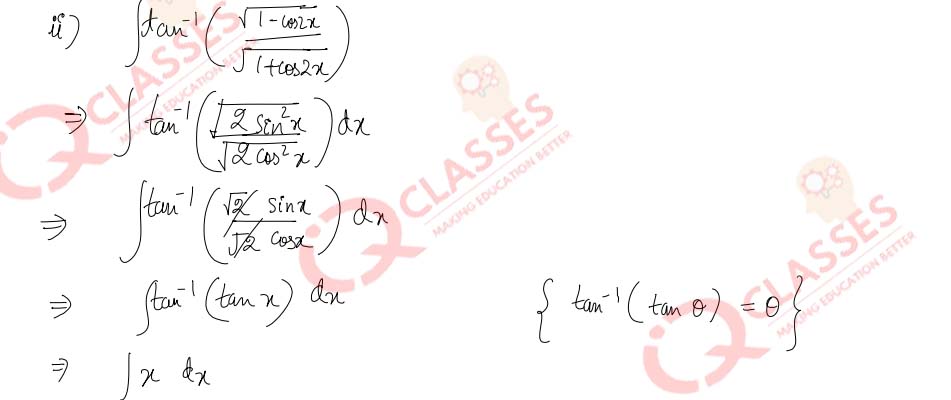 ii) ∫tan⁻¹(√(1-cos2x)/√(1+cos2x))
⇒ ∫tan⁻¹(√(2sin²x)/√(2cos²x))dx
⇒ ∫tan⁻¹(√2 sinx/√2 cosx) dx
⇒ ∫tan⁻¹(tan x) dx {tan⁻¹(tan θ) = θ}
⇒ ∫x dx
IQ CLASSES
MAKING EDUCATION BETTER
IQ CLASSES
MAKING EDUCATION BETTER
IQ CLASSES
MAKING EDUCATION BETTER